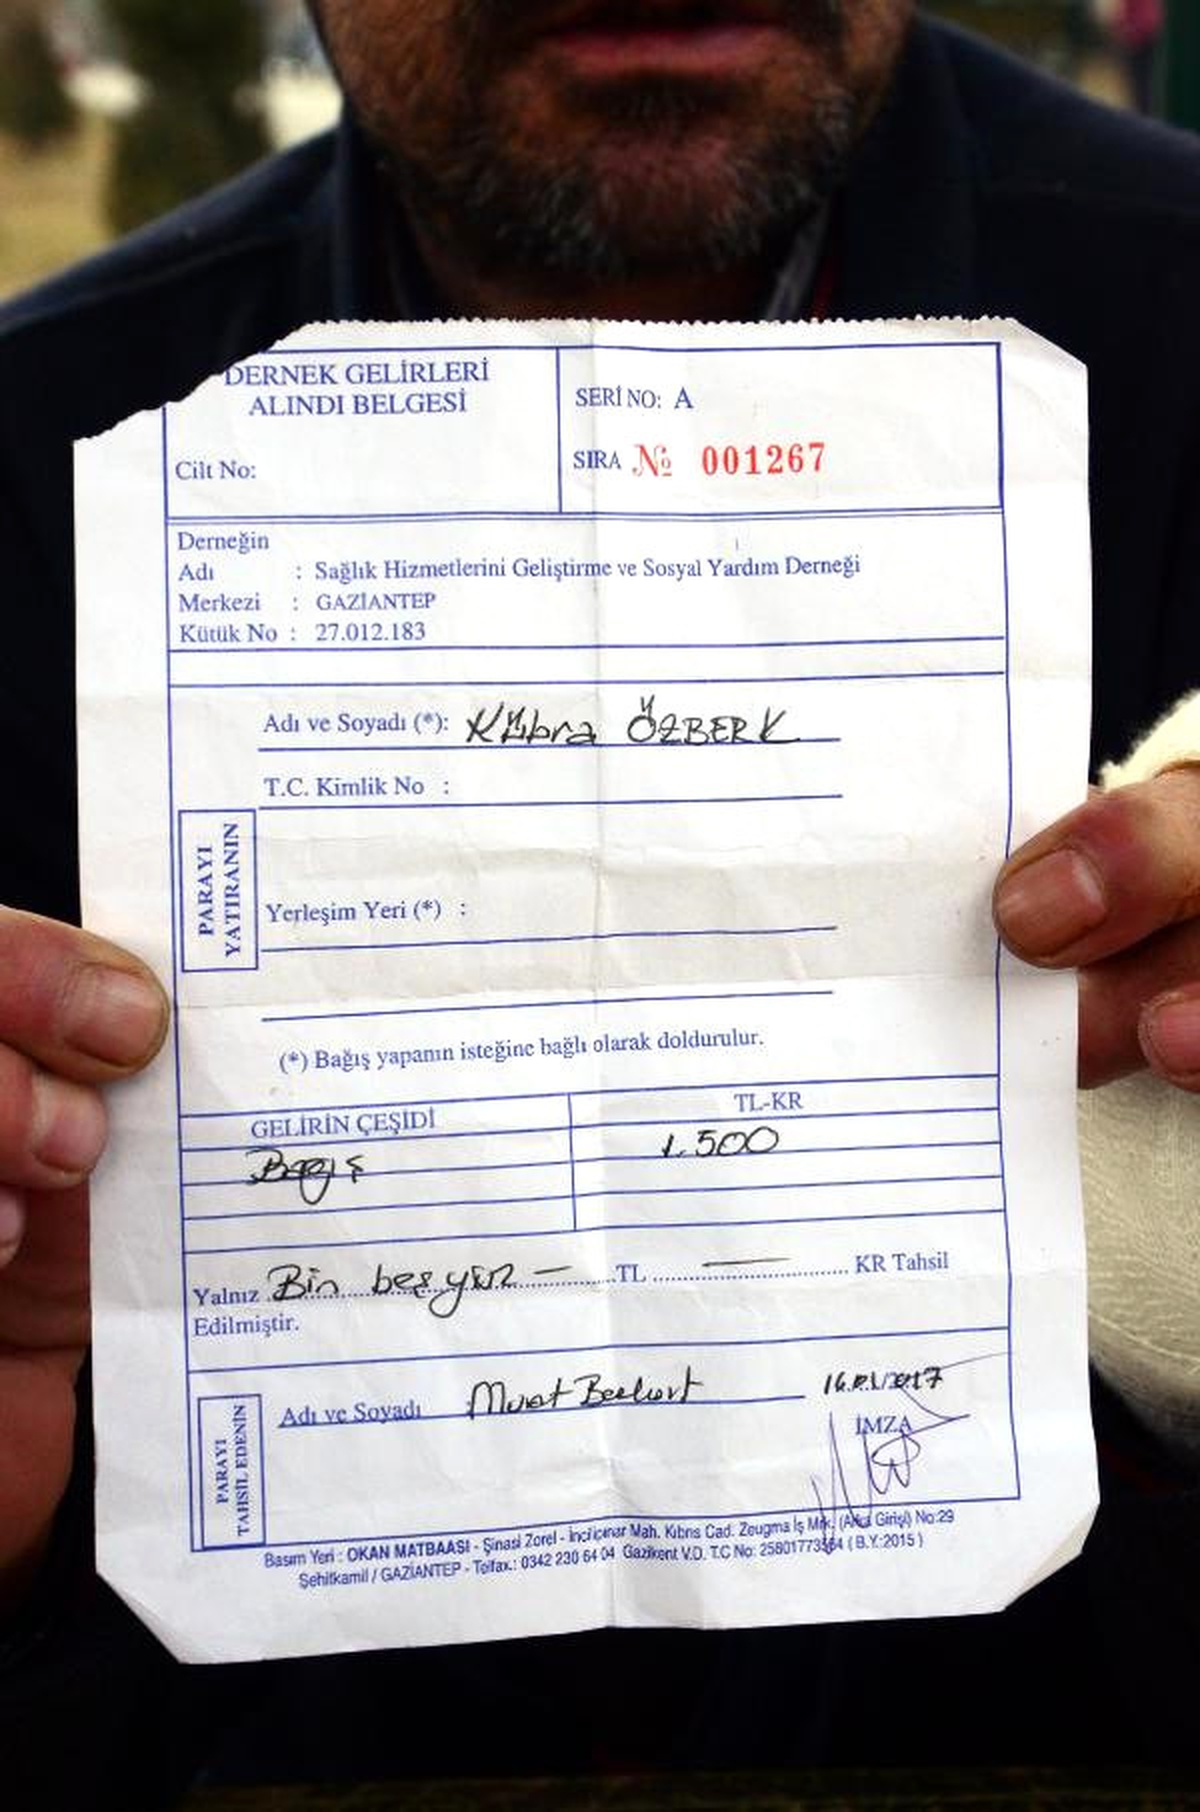 DERNEK GELİRLERİ
ALINDI BELGESİ
Cilt No:
SERİ NO: A
SIRA № 001267
Derneğin
Adı : Sağlık Hizmetlerini Geliştirme ve Sosyal Yardım Derneği
Merkezi : GAZİANTEP
Kütük No : 27.012.183
PARAYI YATIRANIN
Adı ve Soyadı (*): Kübra ÖZBERK
T.C. Kimlik No :
Yerleşim Yeri (*) :
(*) Bağış yapanın isteğine bağlı olarak doldurulur.
GELİRİN ÇEŞİDİ TL-KR
Bağış 1.500
Yalnız Bin beşyüz — TL — KR Tahsil
Edilmiştir.
PARAYI TAHSİL EDENİN
Adı ve Soyadı Murat 16.01.2017
İMZA
Basım Yeri : OKAN MATBAASI - Şinasi Zorel - İncilipınar Mah. Kıbrıs Cad. Zeugma İş Mrk. (Arka Girişi) No:29
Şehitkamil / GAZİANTEP - Telfax.: 0342 230 64 04 Gazikent V.D. T.C No: ( B.Y.:2015 )